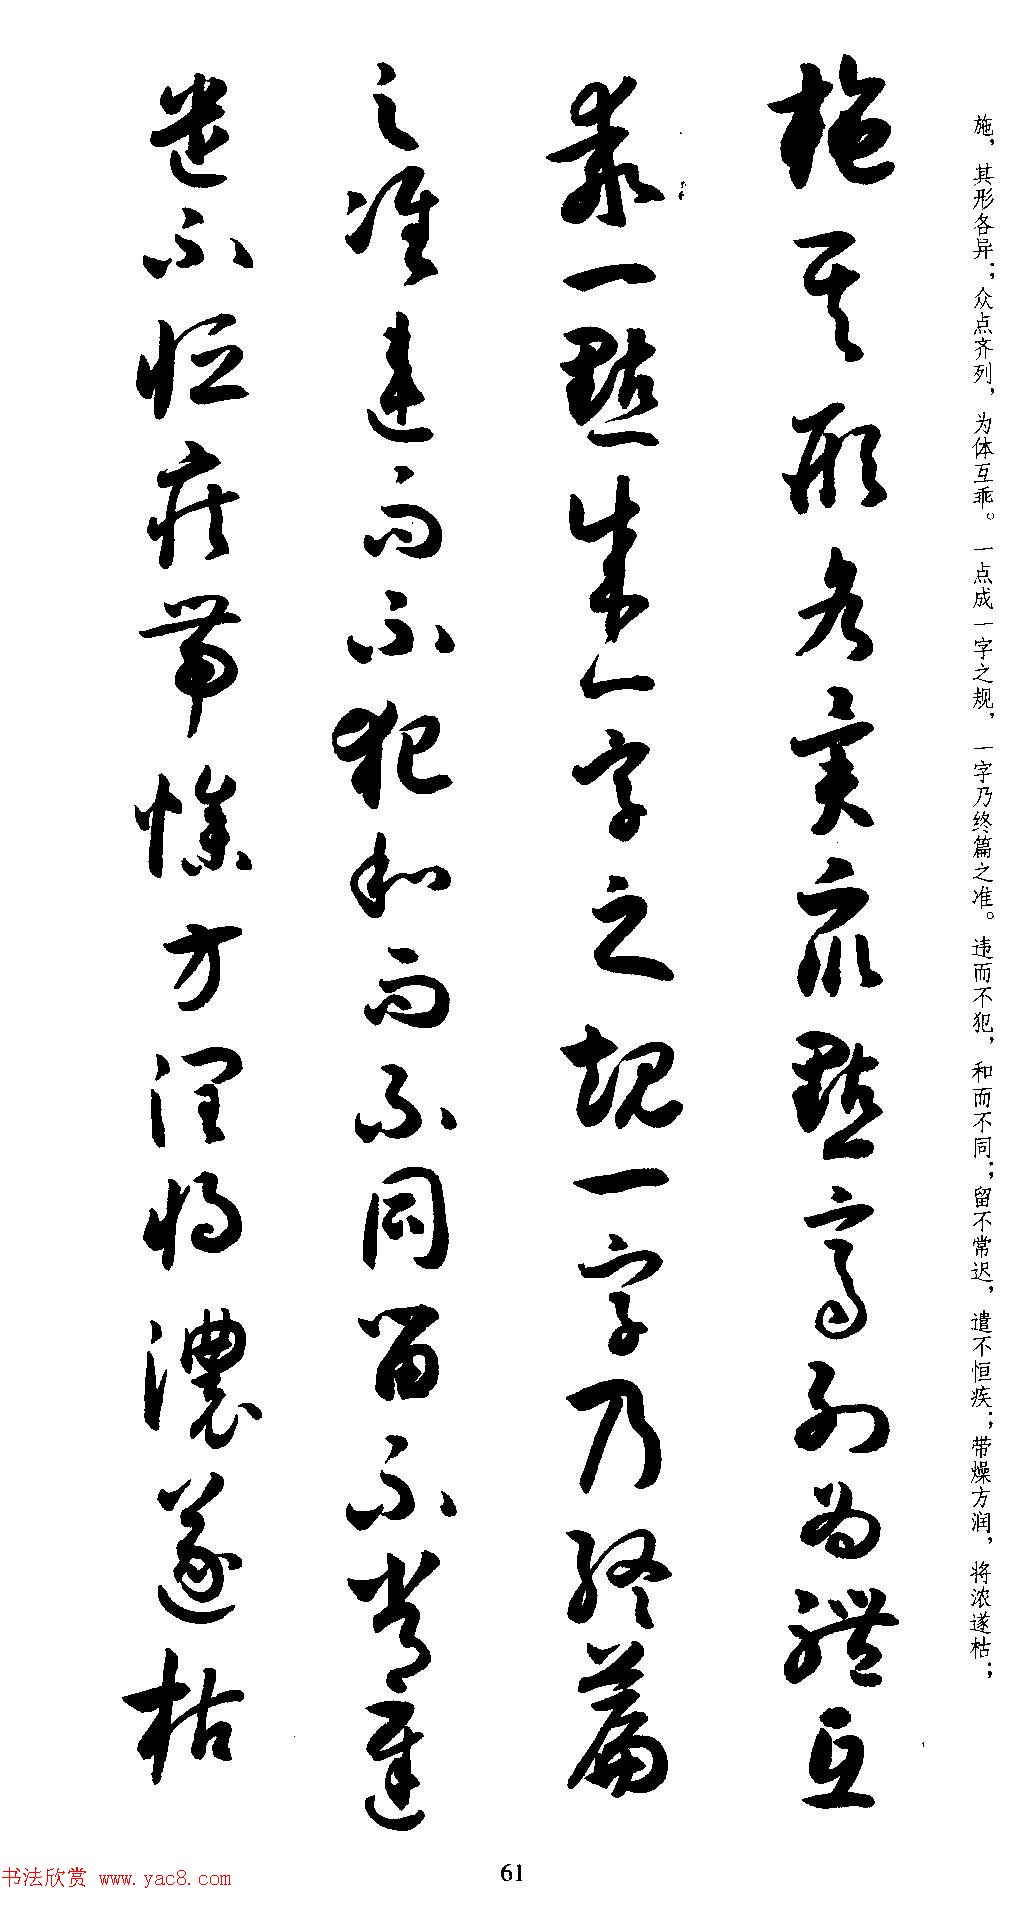 施，其形各异；众点齐列，为体互乖。一点成一字之规，一字乃终篇之准。违而不犯，和而不同；留不常迟，遣不恒疾；带燥方润，将浓遂枯；
施其形各异众點齊列为體互
乖一點成一字之規一字乃終篇
之准違而不犯和而不同留不常遲
遣不恒疾帶燥方潤将濃遂枯
书法欣赏 www.yac8.com
61